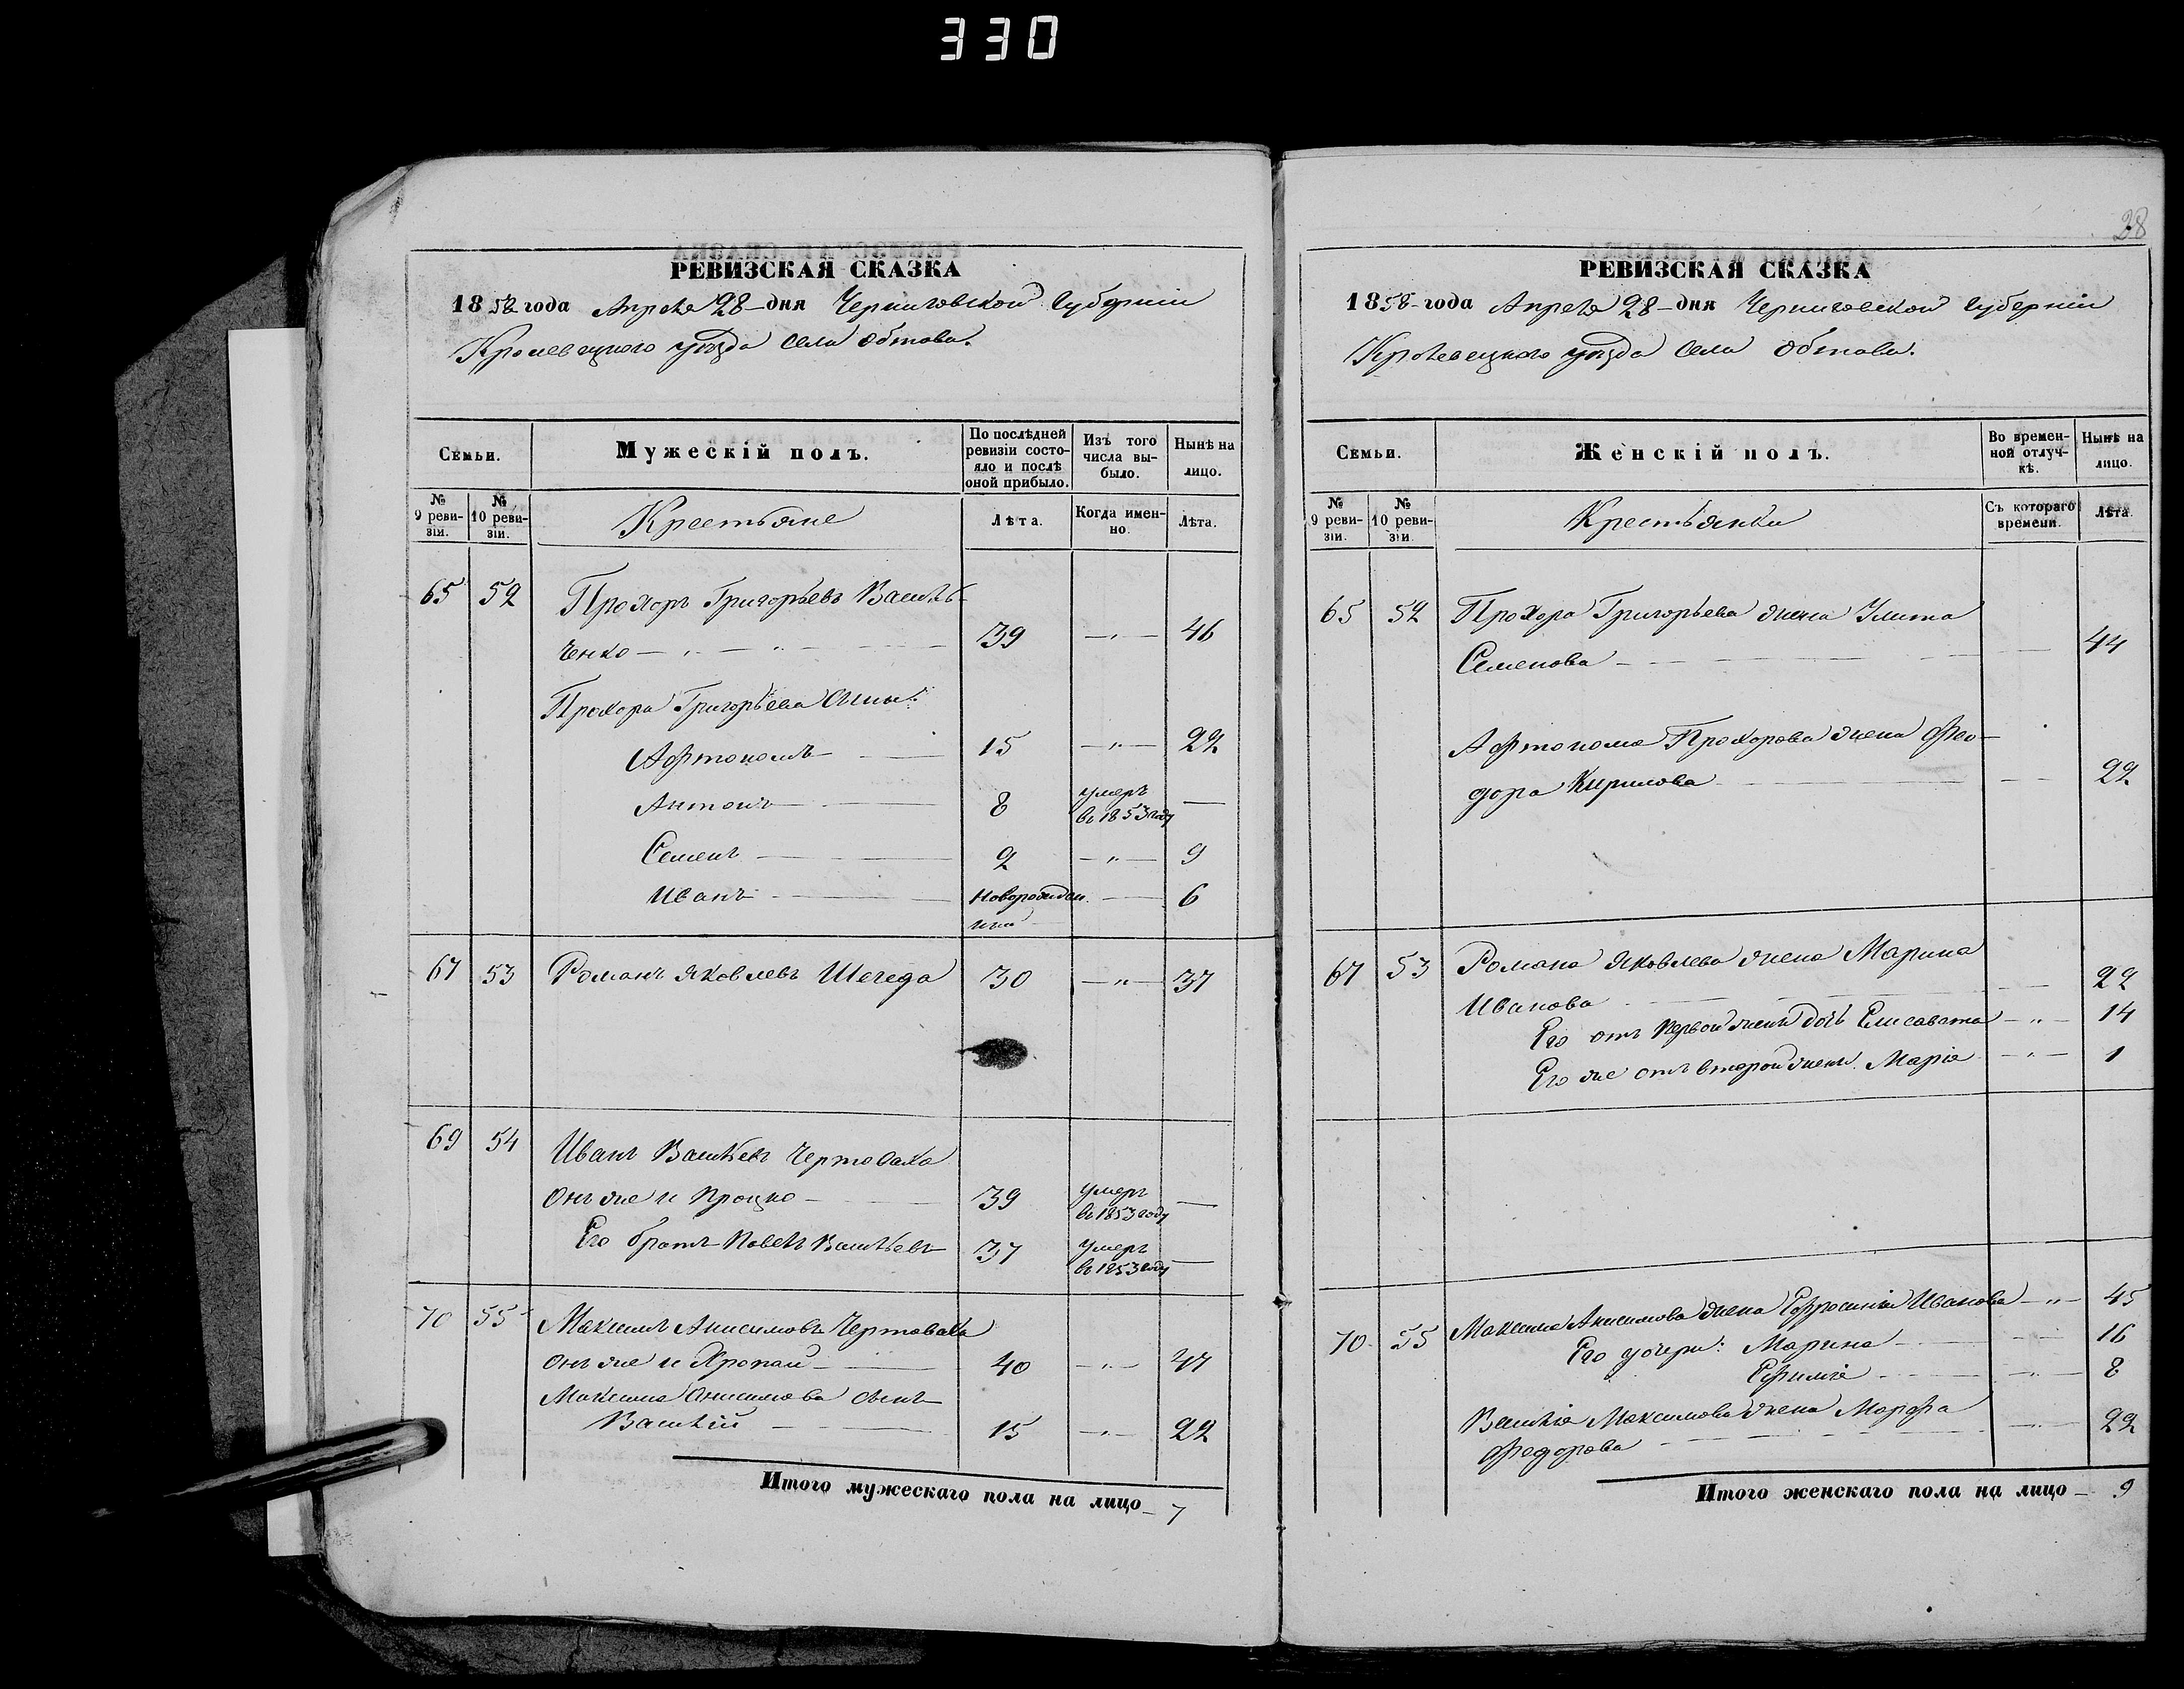 330
РЕВИЗСКАЯ СКАЗКА
1858 года Апреля 28 дня Черниговской Губерніи
Кролевецкого уѣзда Села Обтова.
Семьи.
Мужескій полъ.
По послѣдней ревизіи состояло и послѣ оной прибыло.
Изъ того числа выбыло.
Нынѣ на лицо.
№ 9 ревизіи.
№ 10 ревизіи.
Крестьяне
Лѣта.
Когда именно.
Лѣта.
65 52 Прохоръ Григорьевъ Василь-
ченко 39 — " — 46
Прохора Григорьева Сыны:
Афтономъ 15 — " — 22
Антонъ 8 умеръ въ 1853 году —
Семенъ 2 — " — 9
Иванъ Новорожденный — 6
67 53 Романъ Яковлевъ Шегеда 30 — " — 37
69 54 Иванъ Васильевъ Чертоваха
Онъ же и Процко 39 умеръ въ 1853 году —
Его братъ Павелъ Васильевъ 37 умеръ въ 1853 году —
70 55 Максимъ Анисимовъ Чертоваха
Онъ же и Хропаи 40 — " — 47
Максима Онисимова сынъ
Василій 15 — " — 22
Итого мужескаго пола на лицо 7
28
РЕВИЗСКАЯ СКАЗКА
1858 года Апреля 28 дня Черниговской Губерніи
Кролевецкого уѣзда Села Обтова.
Семьи.
Женскій полъ.
Во временной отлучкѣ.
Нынѣ на лицо.
№ 9 ревизіи.
№ 10 ревизіи.
Крестьянки
Съ котораго времени.
Лѣта.
65 52 Прохора Григорьева жена Улита
Семенова 44
Афтонома Прохорова жена Фео-
дора Кирилова 22
67 53 Романа Яковлева жена Марина
Иванова 22
Его отъ первой жены дочь Елисавета — " — 14
Его же отъ второй жены Марія — " — 1
70 55 Максима Анисимова жена Ефросинія Иванова — " — 45
Его дочери: Марина 16
Ефимія — " — 8
Василія Максимова жена Марфа
Федорова — " — 22
Итого женскаго пола на лицо — 9